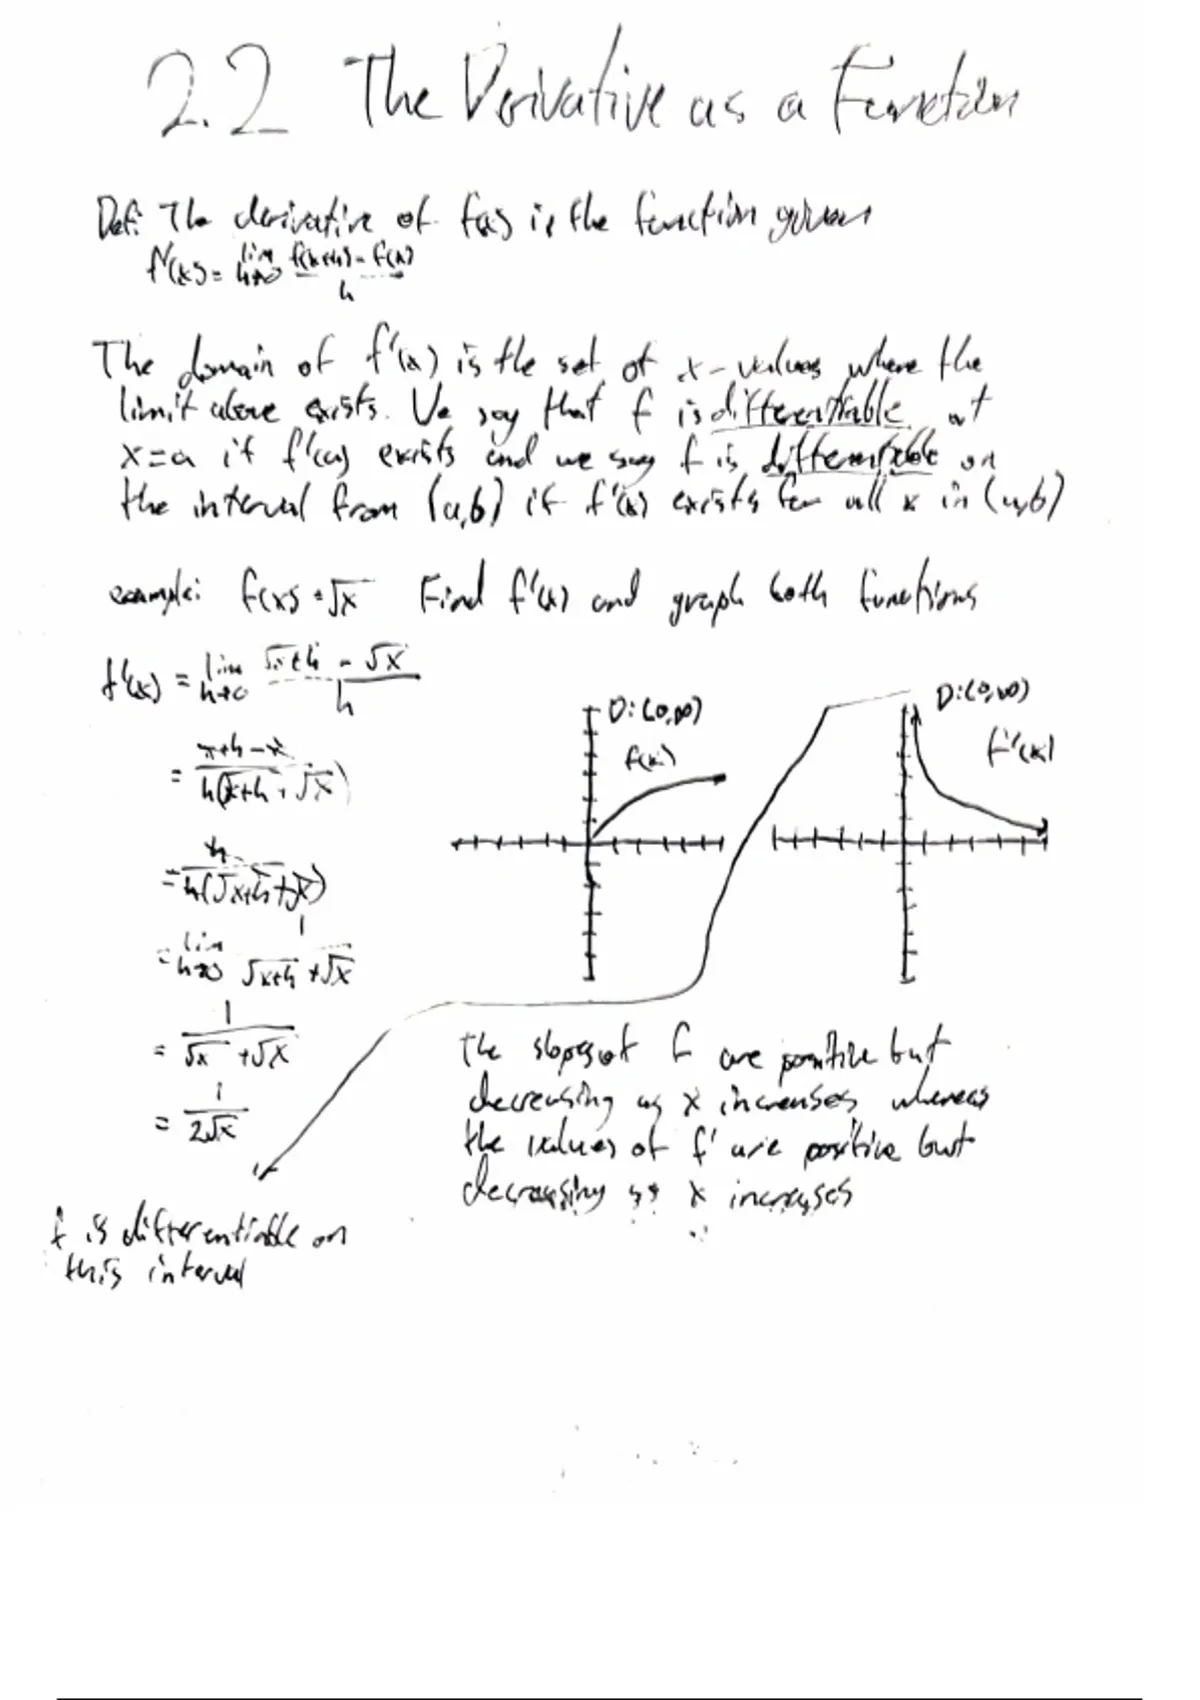 2.2 The Derivative as a Function
Def: The derivative of f(x) is the function given
f'(x) = lim h→0 f(x+h) - f(x) / h
The domain of f'(x) is the set of x-values where the
limit above exists. We say that f is differentiable at
x=a if f'(a) exists and we say f is differentiable on
the interval from (a,b) if f'(x) exists for all x in (a,b)
example: f(x) = √x Find f'(x) and graph both functions
f'(x) = lim h→0 √x+h - √x / h
= x+h-x / h(√x+h + √x)
= h / h(√x+h + √x)
= lim h→0 1 / √x+h + √x
= 1 / √x + √x
= 1 / 2√x
D: [0,∞)
f(x)
D: (0,∞)
f'(x)
The slopes of f are positive but
decreasing as x increases whereas
the values of f' are positive but
decreasing as x increases
f is differentiable on
this interval